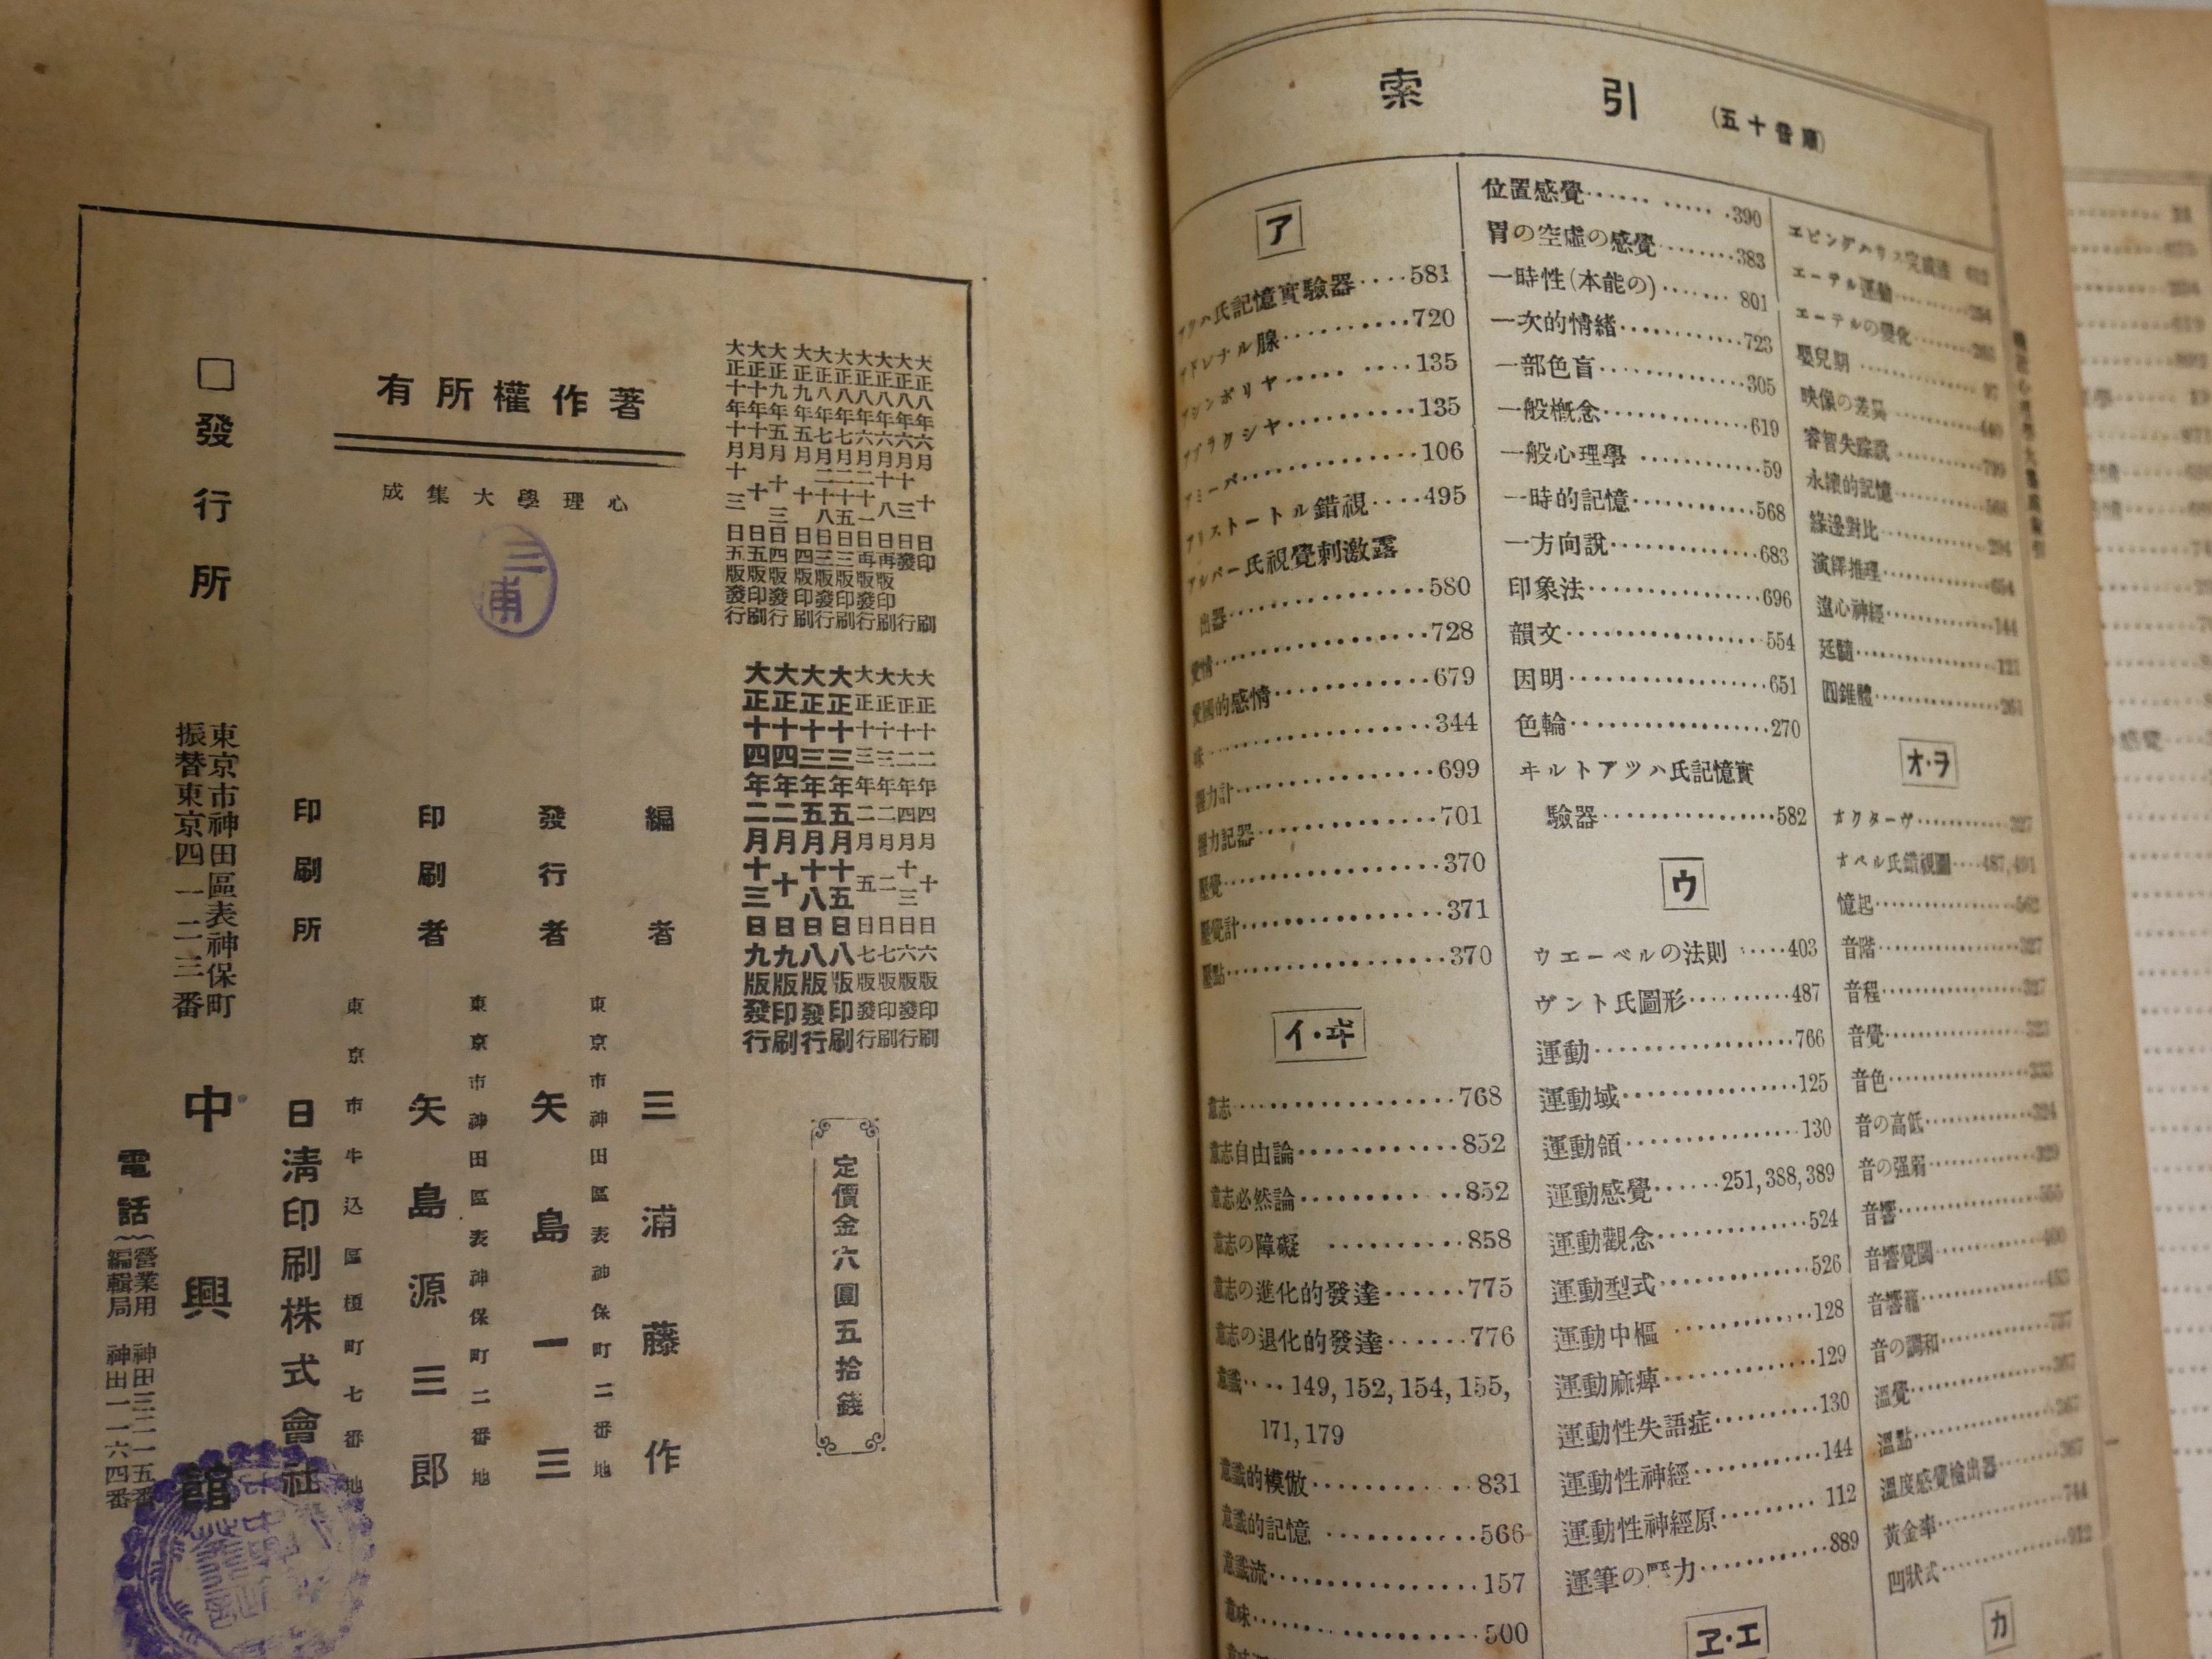 著作權所有
心理學大集成
三浦
大正八年六月十日印刷
大正八年六月十三日發行
大正八年六月十八日再版印刷
大正八年六月二十一日再版發行
大正八年七月二十五日三版印刷
大正八年七月二十八日三版發行
大正九年五月十日四版印刷
大正九年五月十三日四版發行
大正十年十月十日五版印刷
大正十年十月十三日五版發行
大正十二年四月十日六版印刷
大正十二年四月十三日六版發行
大正十三年二月二日七版印刷
大正十三年二月五日七版發行
大正十三年五月十五日八版印刷
大正十三年五月十八日八版發行
大正十四年二月十日九版印刷
大正十四年二月十三日九版發行
定價金六圓五拾錢
編者 三浦藤作
東京市神田區表神保町二番地
發行者 矢島一三
東京市神田區表神保町二番地
印刷者 矢島源三郎
東京市牛込區榎町七番地
印刷所 日淸印刷株式會社
□發行所
東京市神田區表神保町
振替東京四一二三番
中興館
電話
營業用 神田三二一五番
編輯局 神田一一六四番
索引(五十音順)
ア
アツハ氏記憶實驗器····581
アドレナル腺··········720
アシンボリヤ····· ····135
アプラクシヤ·········135
アミーバ·············106
アリストートル錯視····495
アルバー氏視覺刺激露
出器················580
愛情················728
愛國的感情············679
味··················344
握力計··············699
握力記器·············701
壓覺················370
壓覺計··············371
壓點················370
イ·ヰ
意志················768
意志自由論···········852
意志必然論···········852
意志の障礙 ··········858
意志の進化的發達······775
意志の退化的發達······776
意識····149,152,154,155,
171,179
意識的模倣············831
意識的記憶 ···········566
意識流··············157
意味················500
位置感覺······ ·····390
胃の空虛の感覺·······383
一時性(本能の)······801
一次的情緒··········723
一部色盲············305
一般槪念············619
一般心理學 ··········59
一時的記憶··········568
一方向說············683
印象法··············696
韻文················554
因明················651
色輪················270
ヰルトアツハ氏記憶實
驗器················582
ウ
ウエーベルの法則·····403
ヴント氏圖形·········487
運動················766
運動域··············125
運動領··············130
運動感覺······251,388,389
運動觀念············524
運動型式············526
運動中樞 ···········128
運動麻痺············129
運動性失語症·········130
運動性神經··········144
運動性神經原·········112
運筆の壓力··········889
ヱ·エ
エーテル運動
エーテルの變化
嬰兒期
映像の差異
睿智失踪說
永續的記憶
緣邊對比
演繹推理
遠心神經
延髓
圓錐體
オ·ヲ
オクターヴ··········327
オペル氏錯視圖····487,491
憶起················562
音階················327
音程················327
音覺················323
音色················333
音の高低············324
音の强弱············329
音響
音響覺閾
音響籠
音の調和
溫覺················367
溫點················367
溫度感覺檢出器·······367
黃金率··············744
凹狀式··············912
カ